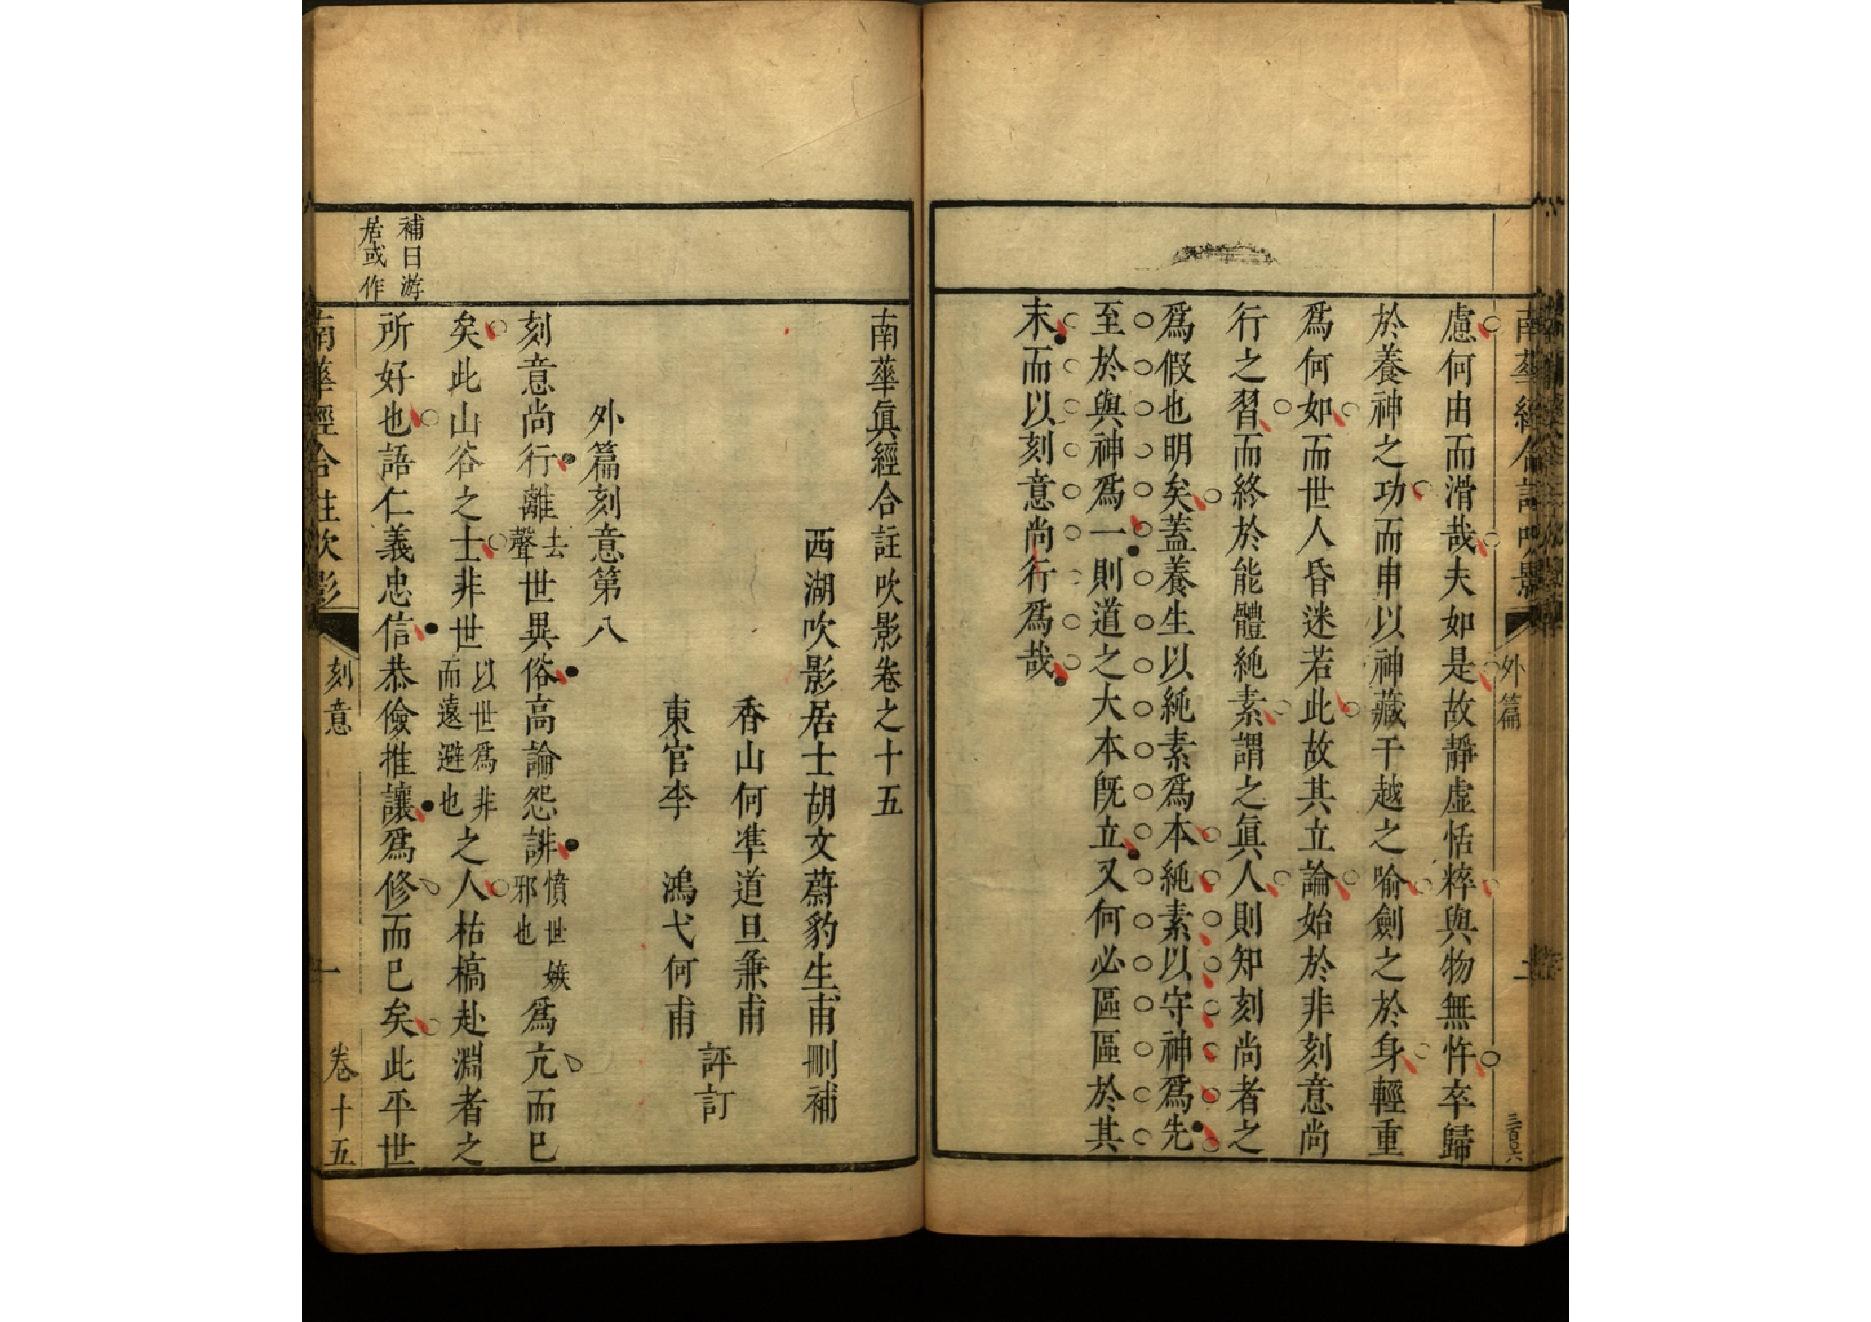 慮何由而滑哉夫如是故靜虛恬粹與物無忤卒歸
於養神之功而申以神藏干越之喻劍之於身輕重
爲何如而世人昏迷若此故其立論始於非刻意尚
行之習而終於能體純素謂之眞人則知刻尚者之
爲假也明矣蓋養生以純素爲本純素以守神爲先
至於與神爲一則道之大本旣立又何必區區於其
末而以刻意尚行爲哉
外篇
三百六
南華眞經合註吹影卷之十五
西湖吹影居士胡文蔚豹生甫刪補
香山何準道旦兼甫
東官李 鴻弋何甫
評訂
外篇刻意第八
刻意尚行離去聲世異俗高論怨誹憤世嫉邪也爲亢而已
矣此山谷之士非世以世爲非而遠避也之人枯槁赴淵者之
所好也語仁義忠信恭儉推讓爲修而已矣此平世
補曰游
居或作
南華經合註吹影
刻意
一
卷十五